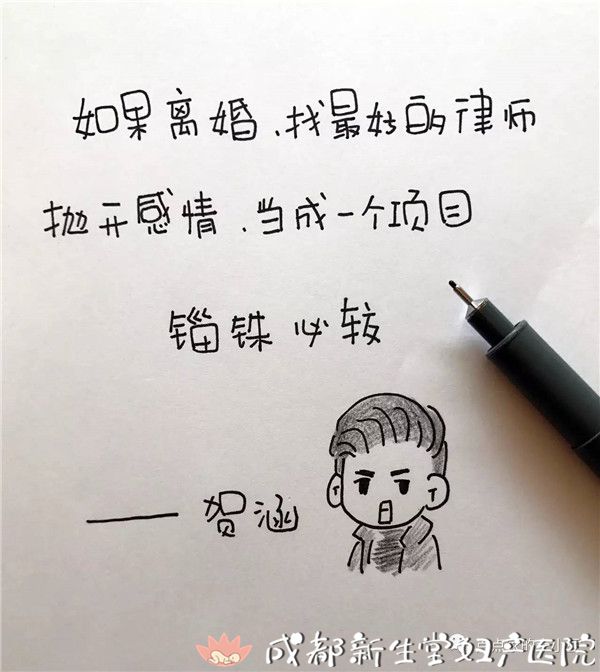 如果离婚、找最好的律师
抛开感情、当成一个项目
锱铢必较
—— 贺涵
成都新生堂妇产医院